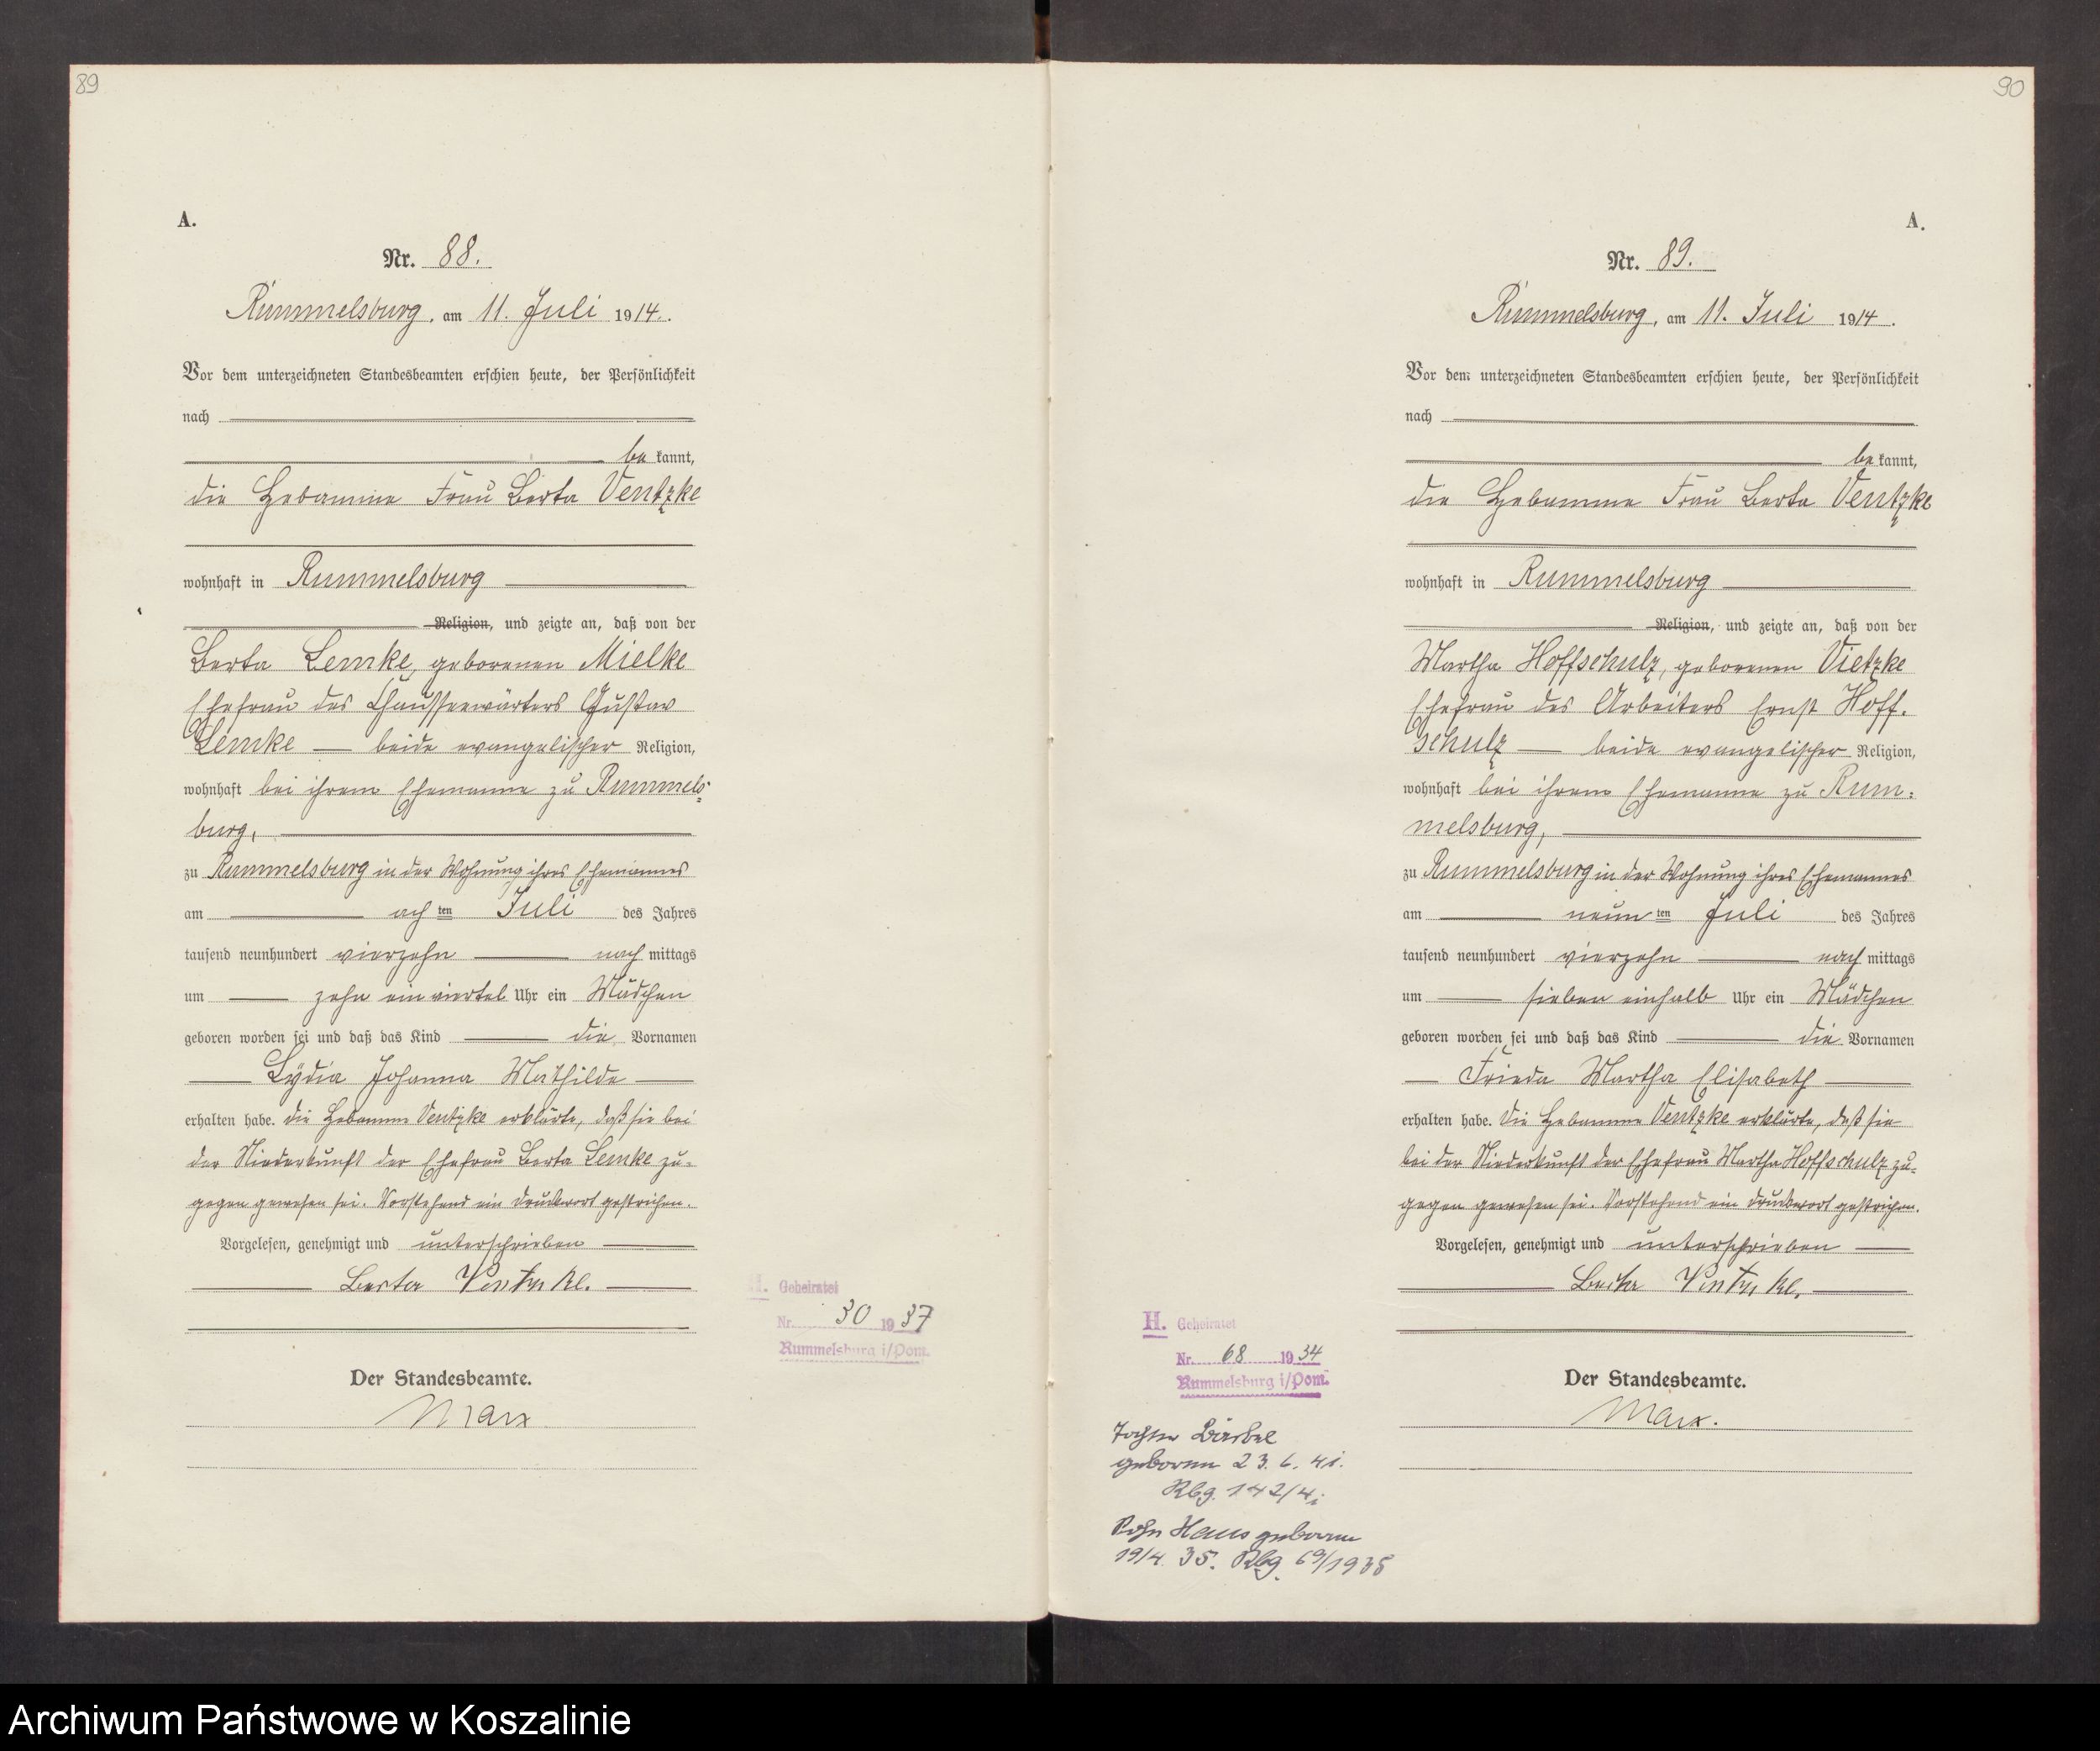 89
A.
Nr. 88.
Rummelsburg, am 11. Juli 1914.
Vor dem unterzeichneten Standesbeamten erschien heute, der Persönlichkeit
nach
be kannt,
die Hebamme Frau Berta Ventzke
wohnhaft in Rummelsburg
Religion, und zeigte an, daß von der
Berta Lemke, geborenen Mielke
Ehefrau des Chausseewärters Gustav
Lemke — beide evangelischer Religion,
wohnhaft bei ihrem Ehemanne zu Rummels-
burg,
zu Rummelsburg in der Wohnung ihres Ehemannes
am ach ten Juli des Jahres
tausend neunhundert vierzehn nach mittags
um zehn ein viertel Uhr ein Mädchen
geboren worden sei und daß das Kind die Vornamen
Lydia Johanna Mathilde
erhalten habe. Die Hebamme Ventzke erklärte, daß sie bei
der Niederkunft der Ehefrau Berta Lemke zu-
gegen gewesen sei. Vorstehend ein Druckwort gestrichen.
Vorgelesen, genehmigt und unterschrieben
Berta Ventzke.
Der Standesbeamte.
Marx
H. Geheiratet
Nr. 30 19 37
Rummelsburg i/Pom.
90
A.
Nr. 89.
Rummelsburg, am 11. Juli 1914.
Vor dem unterzeichneten Standesbeamten erschien heute, der Persönlichkeit
nach
be kannt,
die Hebamme Frau Berta Ventzke
wohnhaft in Rummelsburg
Religion, und zeigte an, daß von der
Martha Hoffschulz, geborenen Vietzke
Ehefrau des Arbeiters Ernst Hoff-
schulz — beide evangelischer Religion,
wohnhaft bei ihrem Ehemanne zu Rum-
melsburg,
zu Rummelsburg in der Wohnung ihres Ehemannes
am neun ten Juli des Jahres
tausend neunhundert vierzehn nach mittags
um sieben einhalb Uhr ein Mädchen
geboren worden sei und daß das Kind die Vornamen
Frieda Martha Elisabeth
erhalten habe. Die Hebamme Ventzke erklärte, daß sie
bei der Niederkunft der Ehefrau Martha Hoffschulz zu-
gegen gewesen sei. Vorstehend ein Druckwort gestrichen.
Vorgelesen, genehmigt und unterschrieben
Berta Ventzke.
Der Standesbeamte.
Marx.
H. Geheiratet
Nr. 68 19 34
Rummelsburg i/Pom.
Tochter Bärbel
geboren 23.6.41.
Rbg. 142/41
Sohn Hans geboren
19/4. 35. Rbg. 69/1935
Archiwum Państwowe w Koszalinie